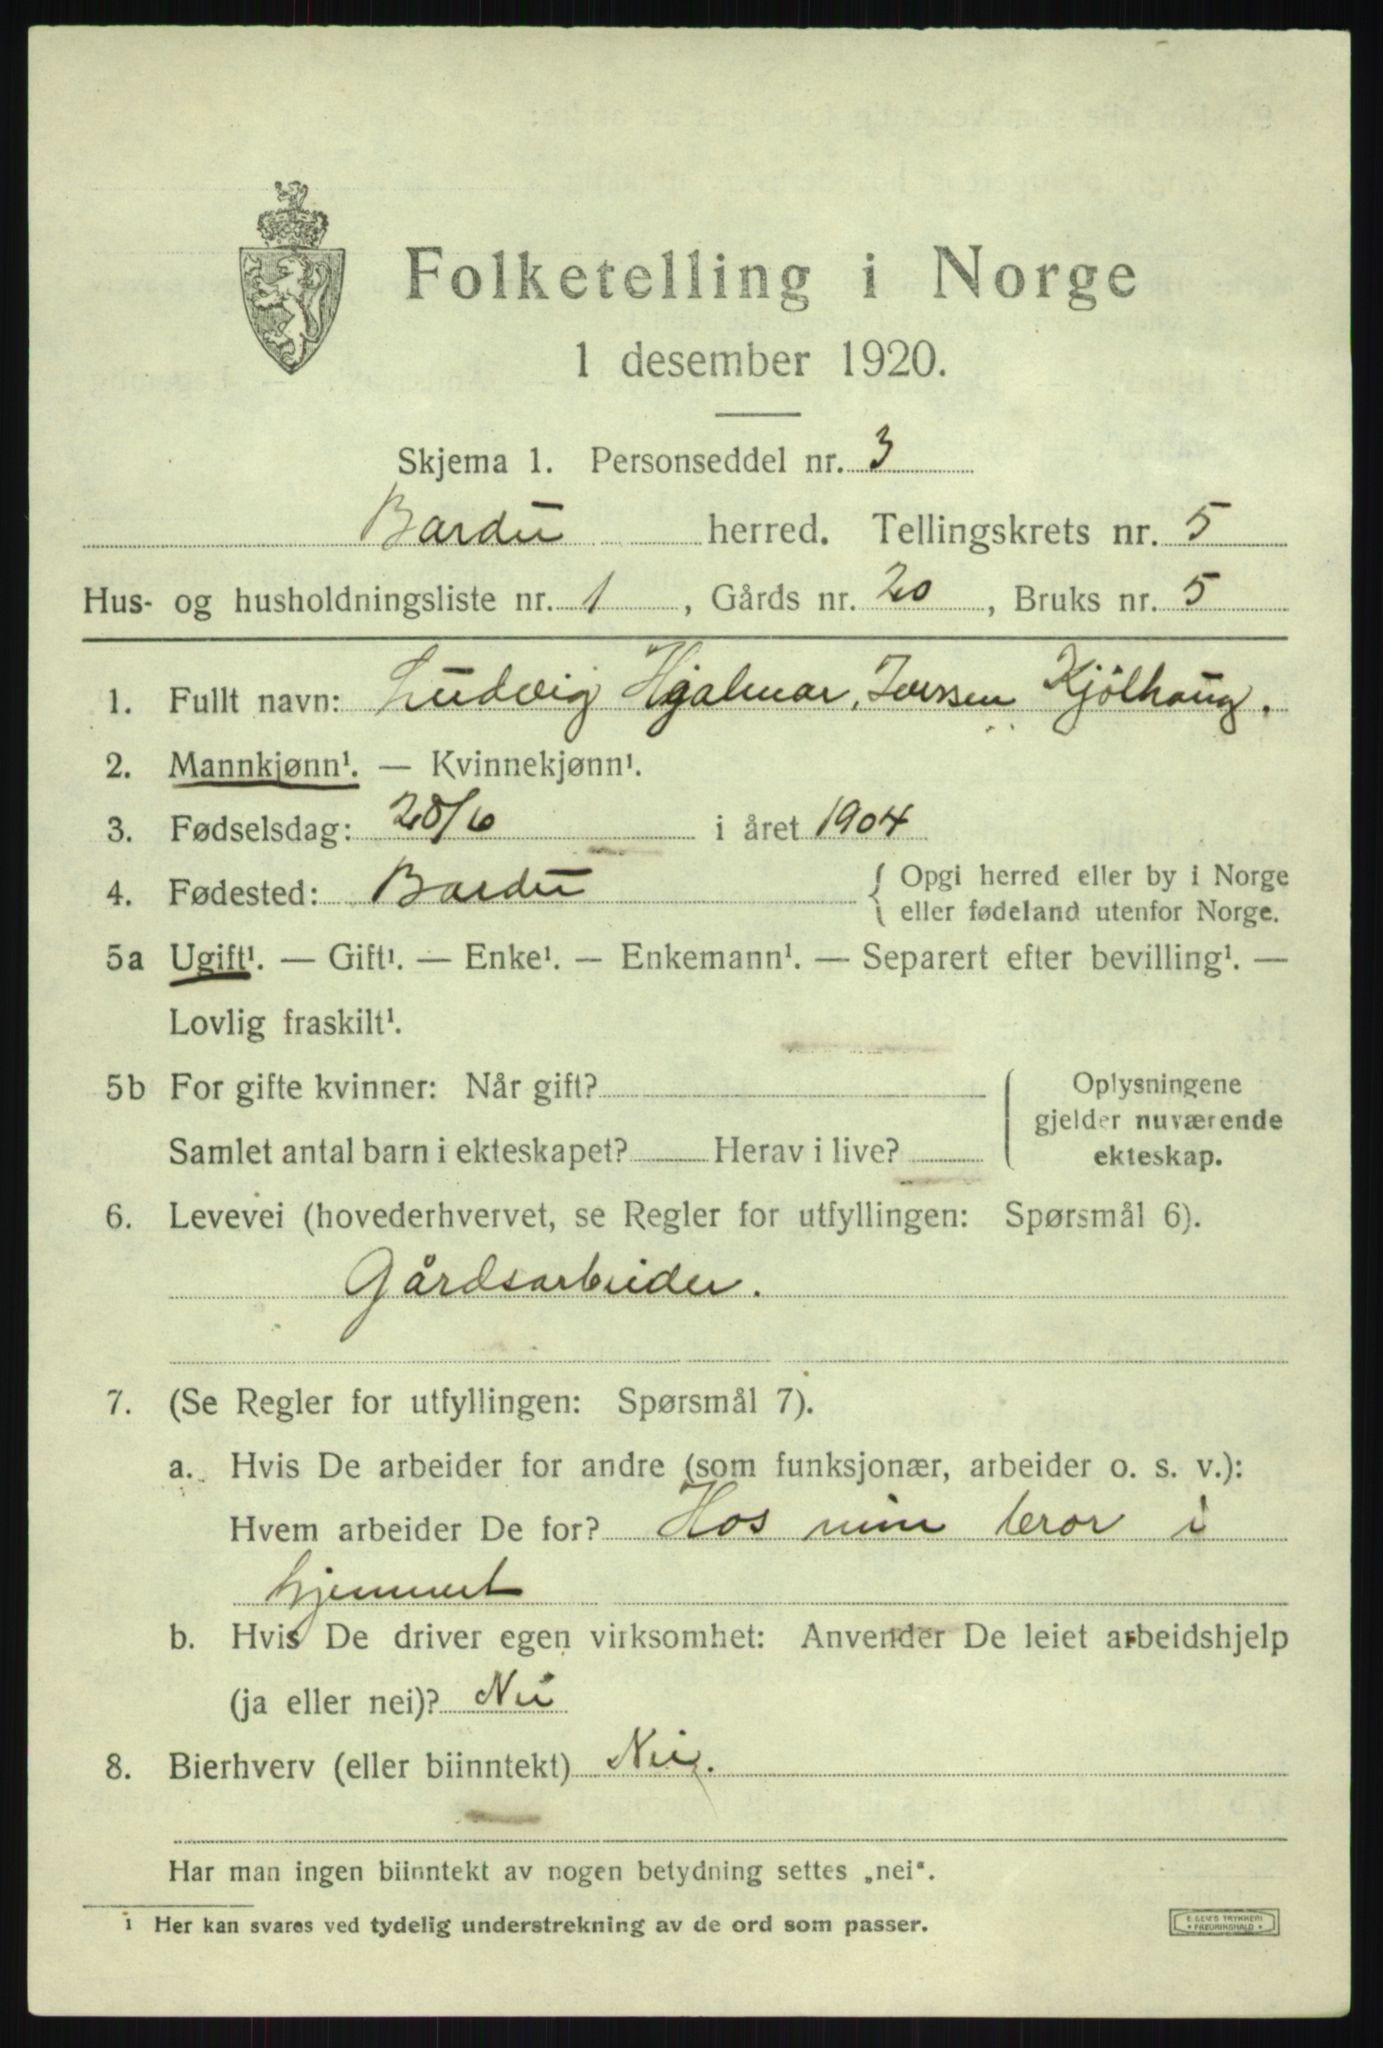 Folketelling i Norge
1 desember 1920.
Skjema 1. Personseddel nr. 3
Bardu herred. Tellingskrets nr. 5
Hus- og husholdningsliste nr. 1, Gårds nr. 20, Bruks nr. 5
1. Fullt navn: Ludvig Hjalmar, Iversen Kjölhaug.
2. Mannkjønn¹. — Kvinnekjønn¹.
3. Fødselsdag: 28/6 i året 1904
4. Fødested: Bardu { Opgi herred eller by i Norge
eller fødeland utenfor Norge.
5a Ugift¹. — Gift¹. — Enke¹. — Enkemann¹. — Separert efter bevilling¹. —
Lovlig fraskilt¹.
5b For gifte kvinner: Når gift?
Samlet antal barn i ekteskapet? Herav i live?
Oplysningene
gjelder nuværende
ekteskap.
6. Levevei (hovederhvervet, se Regler for utfyllingen: Spørsmål 6).
Gårdsarbeider.
7. (Se Regler for utfyllingen: Spørsmål 7).
a. Hvis De arbeider for andre (som funksjonær, arbeider o. s. v.):
Hvem arbeider De for? Hos min bror i
hjemmet
b. Hvis De driver egen virksomhet: Anvender De leiet arbeidshjelp
(ja eller nei)? Nei
8. Bierhverv (eller biinntekt) Nei.
Har man ingen biinntekt av nogen betydning settes „nei“.
1 Her kan svares ved tydelig understrekning av de ord som passer.
FREDRIKSHALD